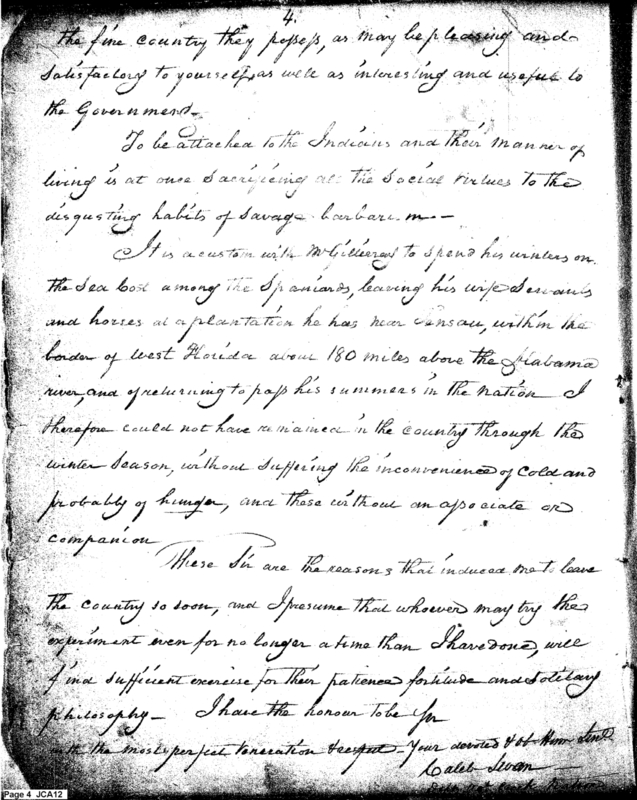 4.
the fine country they possess, as may be pleasing and
satisfactory to yourself, as well as interesting and useful to
the Government—
To be attached to the Indians and their manner of
living is at once sacrificing all the social virtues to the
disgusting habits of savage barbarism—
It is a custom with McGillivray to spend his winters on
the Sea Cost among the Spaniards, leaving his wife Servants
and horses at a plantation he has near Tensau, within the
border of West Florida about 180 miles above the Alabama
river, and of returning to pass his summers in the nation I
therefore could not have remained in the country through the
winter season, without suffering the inconvenience of cold and
probably of hunger, and these without an associate or
companion
These Sir are the reasons that induced me to leave
the country so soon, and I presume that whoever may try the
experiment even for no longer a time than I have done, will
find sufficient exercise for their patience fortitude and solitary
philosophy— I have the honour to be Sir
with the most perfect Veneration & respect— Your devoted & ob Hum Servt
Caleb Swan
Page 4 JCA12